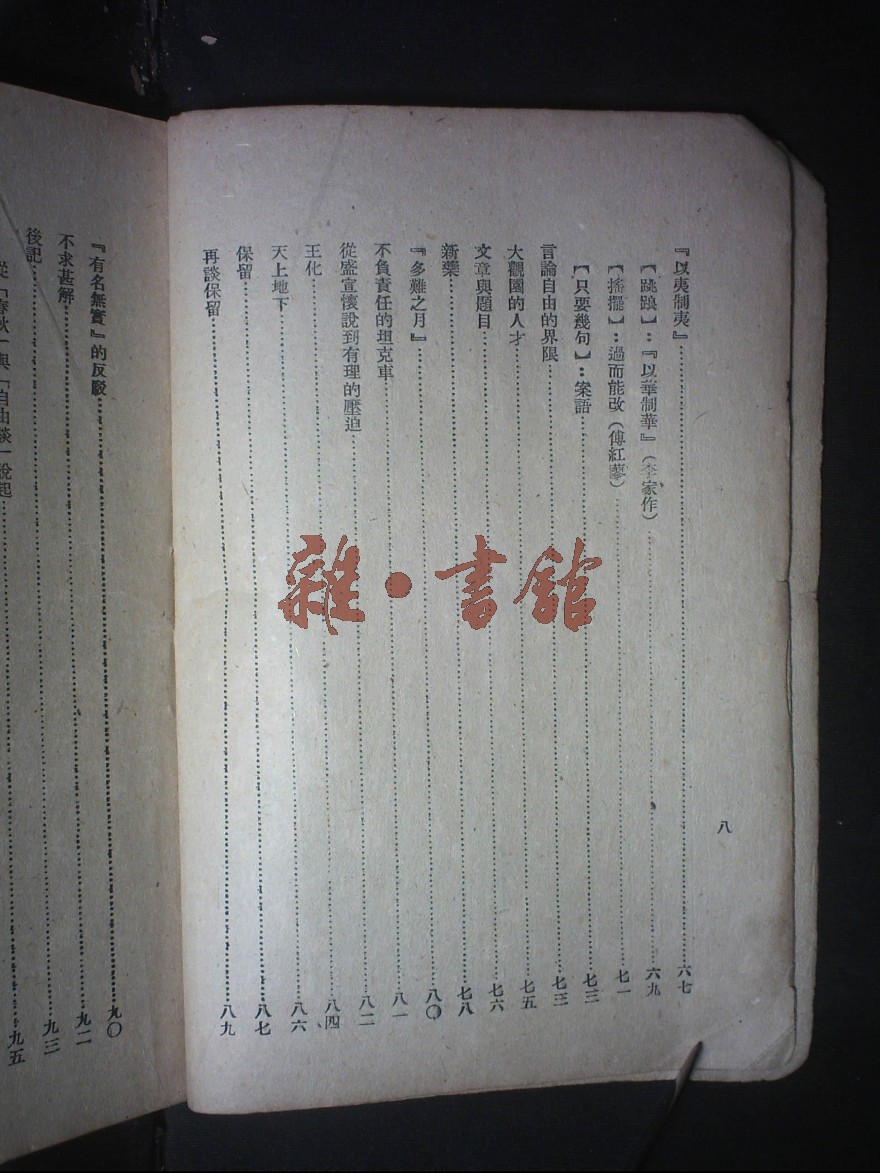 八
『以夷制夷』……六七
【跳踉】：『以華制華』（李家作）……六九
【搖擺】：過而能改（傅紅蓼）……七一
【只要幾句】：案語……七三
言論自由的界限……七三
大觀園的人才……七五
文章與題目……七六
新藥……七八
『多難之月』……八〇
不負責任的坦克車……八一
從盛宣懷說到有理的壓迫……八二
王化……八四
天上地下……八六
保留……八七
再談保留……八九
『有名無實』的反駁……九〇
不求甚解……九二
後記……九三
從「春秋」與「自由談」說起……九五
雜·書館